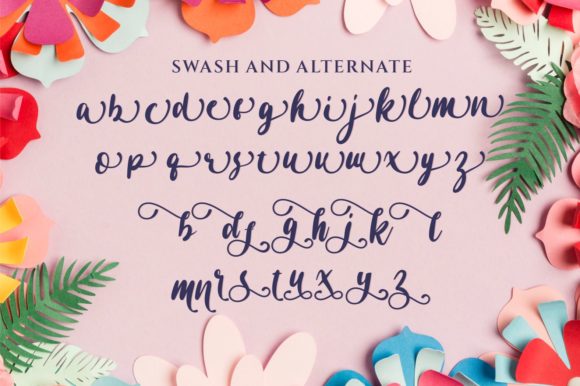 SWASH AND ALTERNATE
abcdefghijklmn
opqrstuvwxyz
b df ghjk l
mnrstuxyz